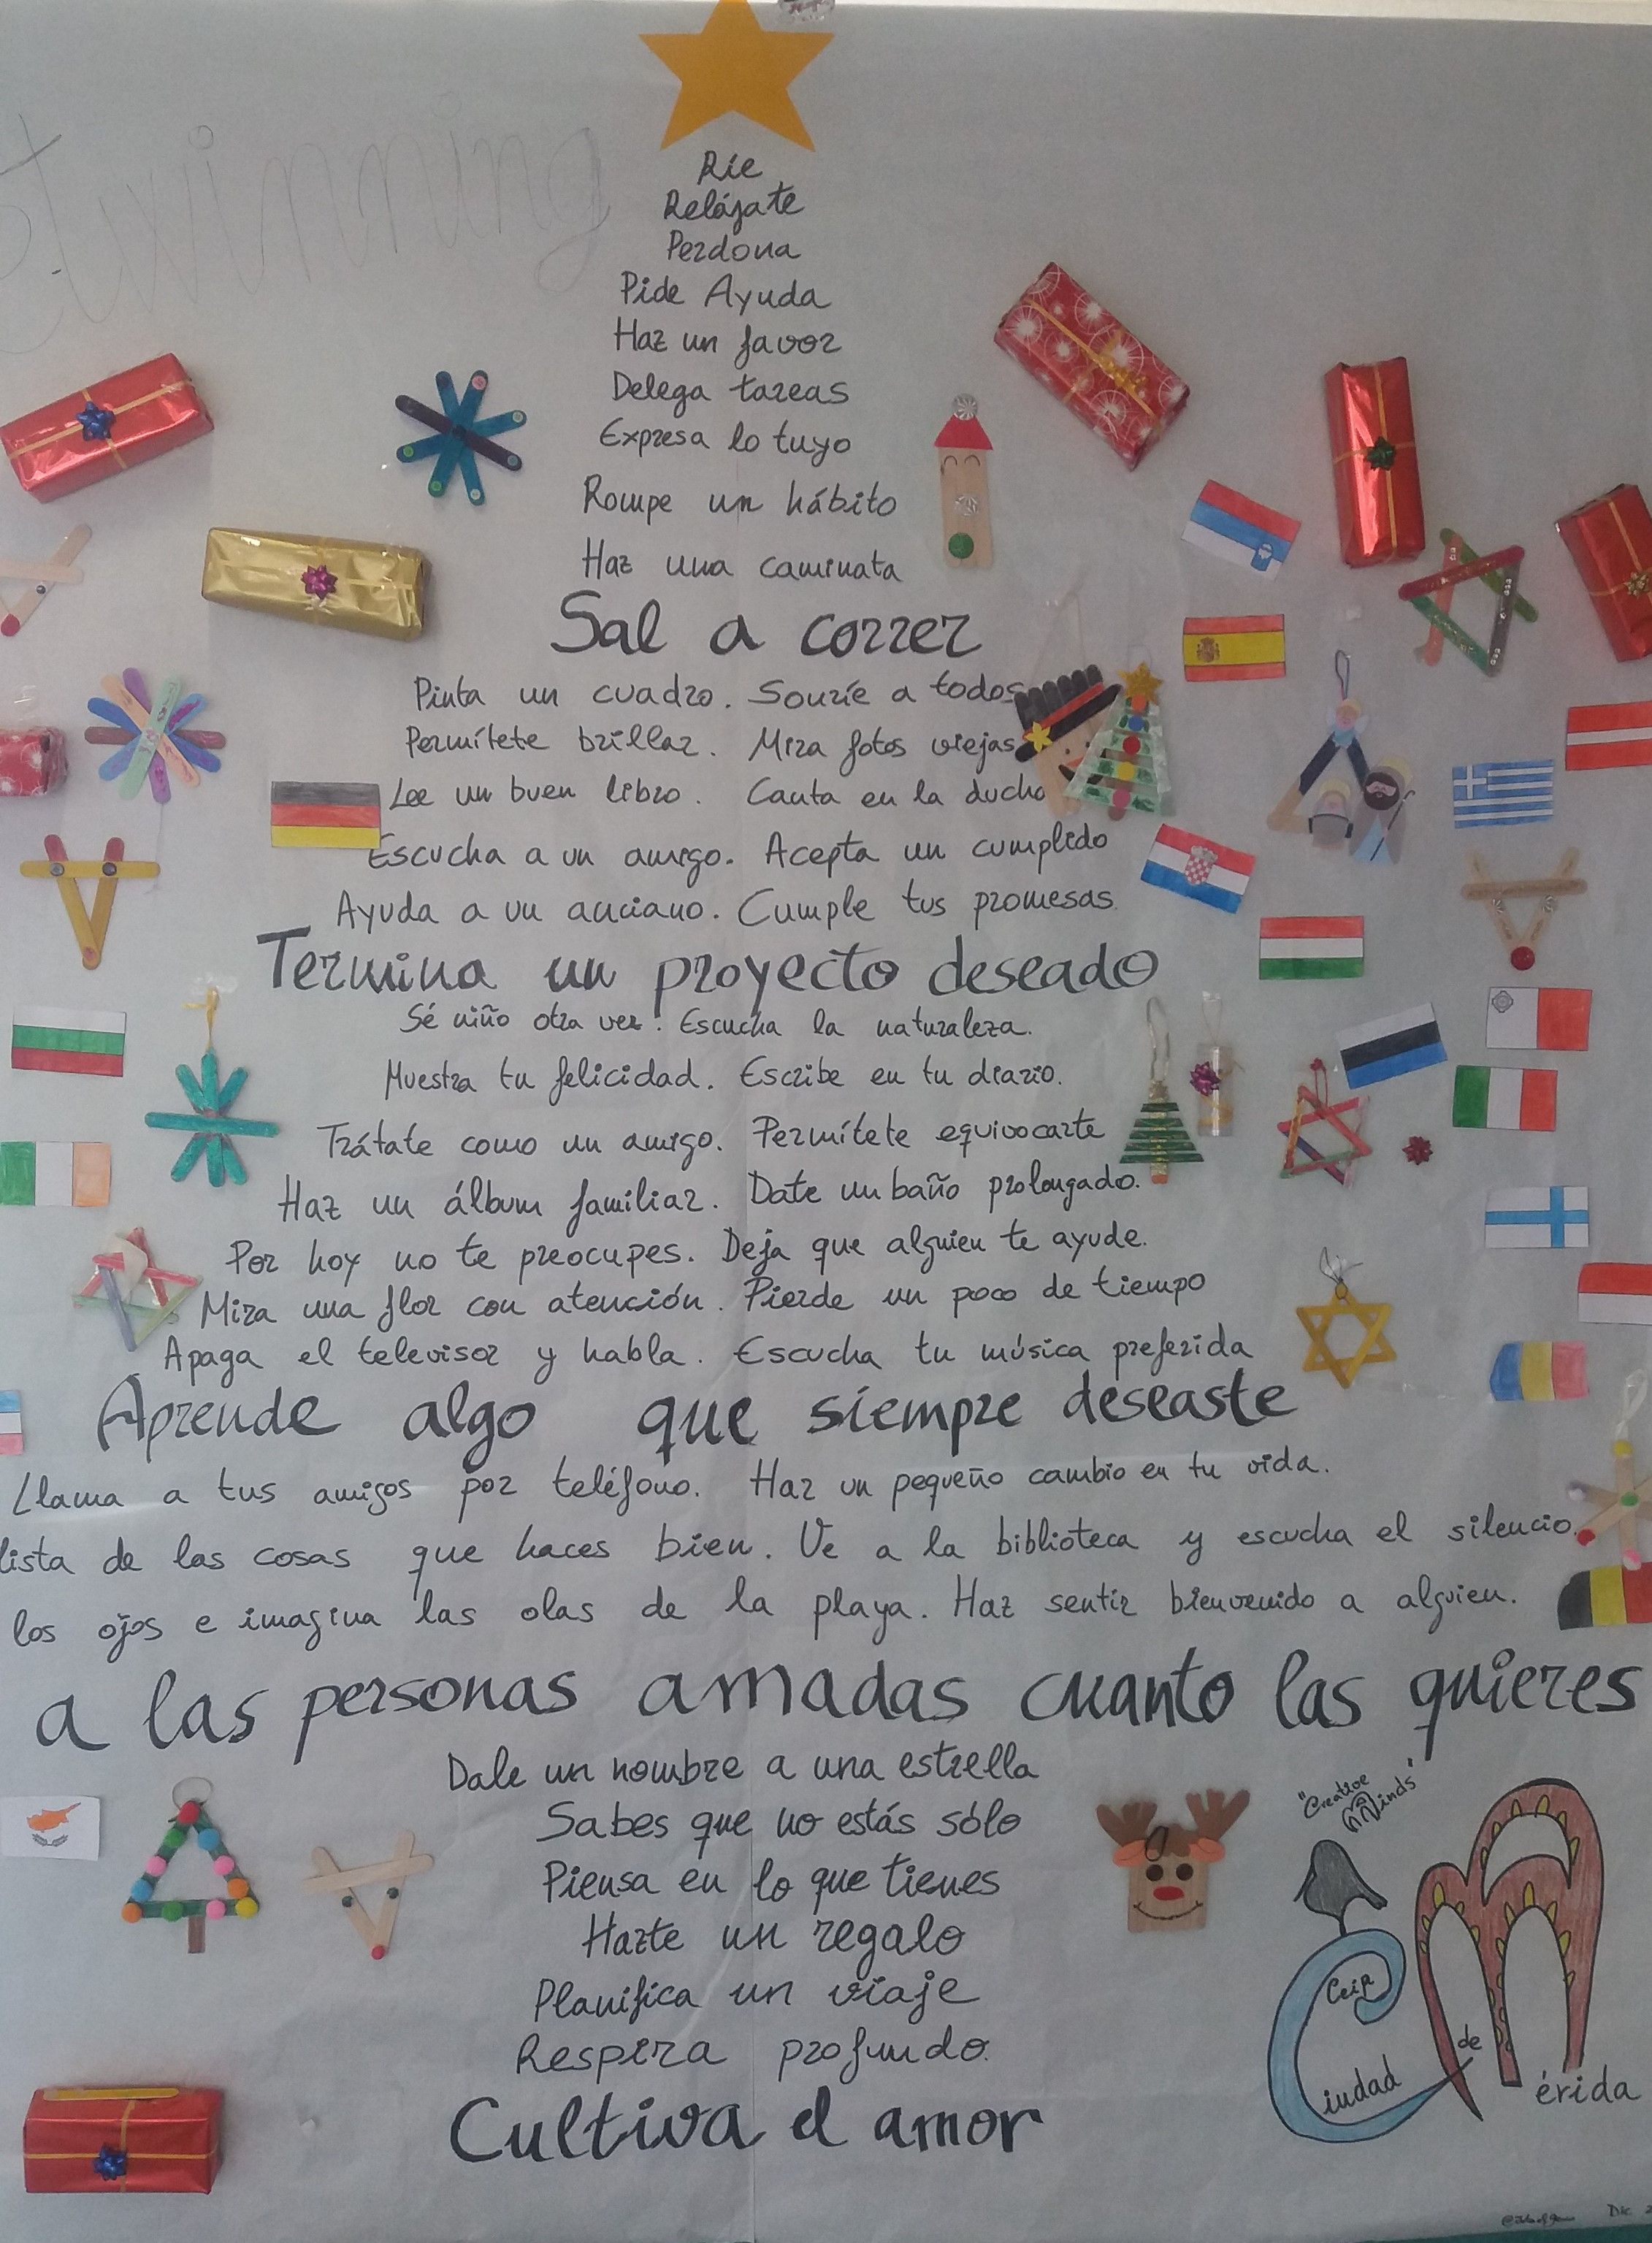 etwinning
Ríe
Relájate
Perdona
Pide Ayuda
Haz un favor
Delega tareas
Expresa lo tuyo
Rompe un hábito
Haz una caminata
Sal a correr
Pinta un cuadro. Sonríe a todos
Permítete brillar. Mira fotos viejas
Lee un buen libro. Canta en la ducha
Escucha a un amigo. Acepta un cumplido
Ayuda a un anciano. Cumple tus promesas.
Termina un proyecto deseado
Sé niño otra vez. Escucha la naturaleza.
Muestra tu felicidad. Escribe en tu diario.
Trátate como un amigo. Permítete equivocarte
Haz un álbum familiar. Date un baño prolongado.
Por hoy no te preocupes. Deja que alguien te ayude.
Mira una flor con atención. Pierde un poco de tiempo
Apaga el televisor y habla. Escucha tu música preferida
Aprende algo que siempre deseaste
Llama a tus amigos por teléfono. Haz un pequeño cambio en tu vida.
lista de las cosas que haces bien. Ve a la biblioteca y escucha el silencio.
los ojos e imagina las olas de la playa. Haz sentir bienvenido a alguien.
a las personas amadas cuanto las quieres
Dale un nombre a una estrella
Sabes que no estás sólo
Piensa en lo que tienes
Hazte un regalo
Planifica un viaje
Respira profundo.
Cultiva el amor
"Creative Minds"
Ceip
Ciudad de Mérida
Dic